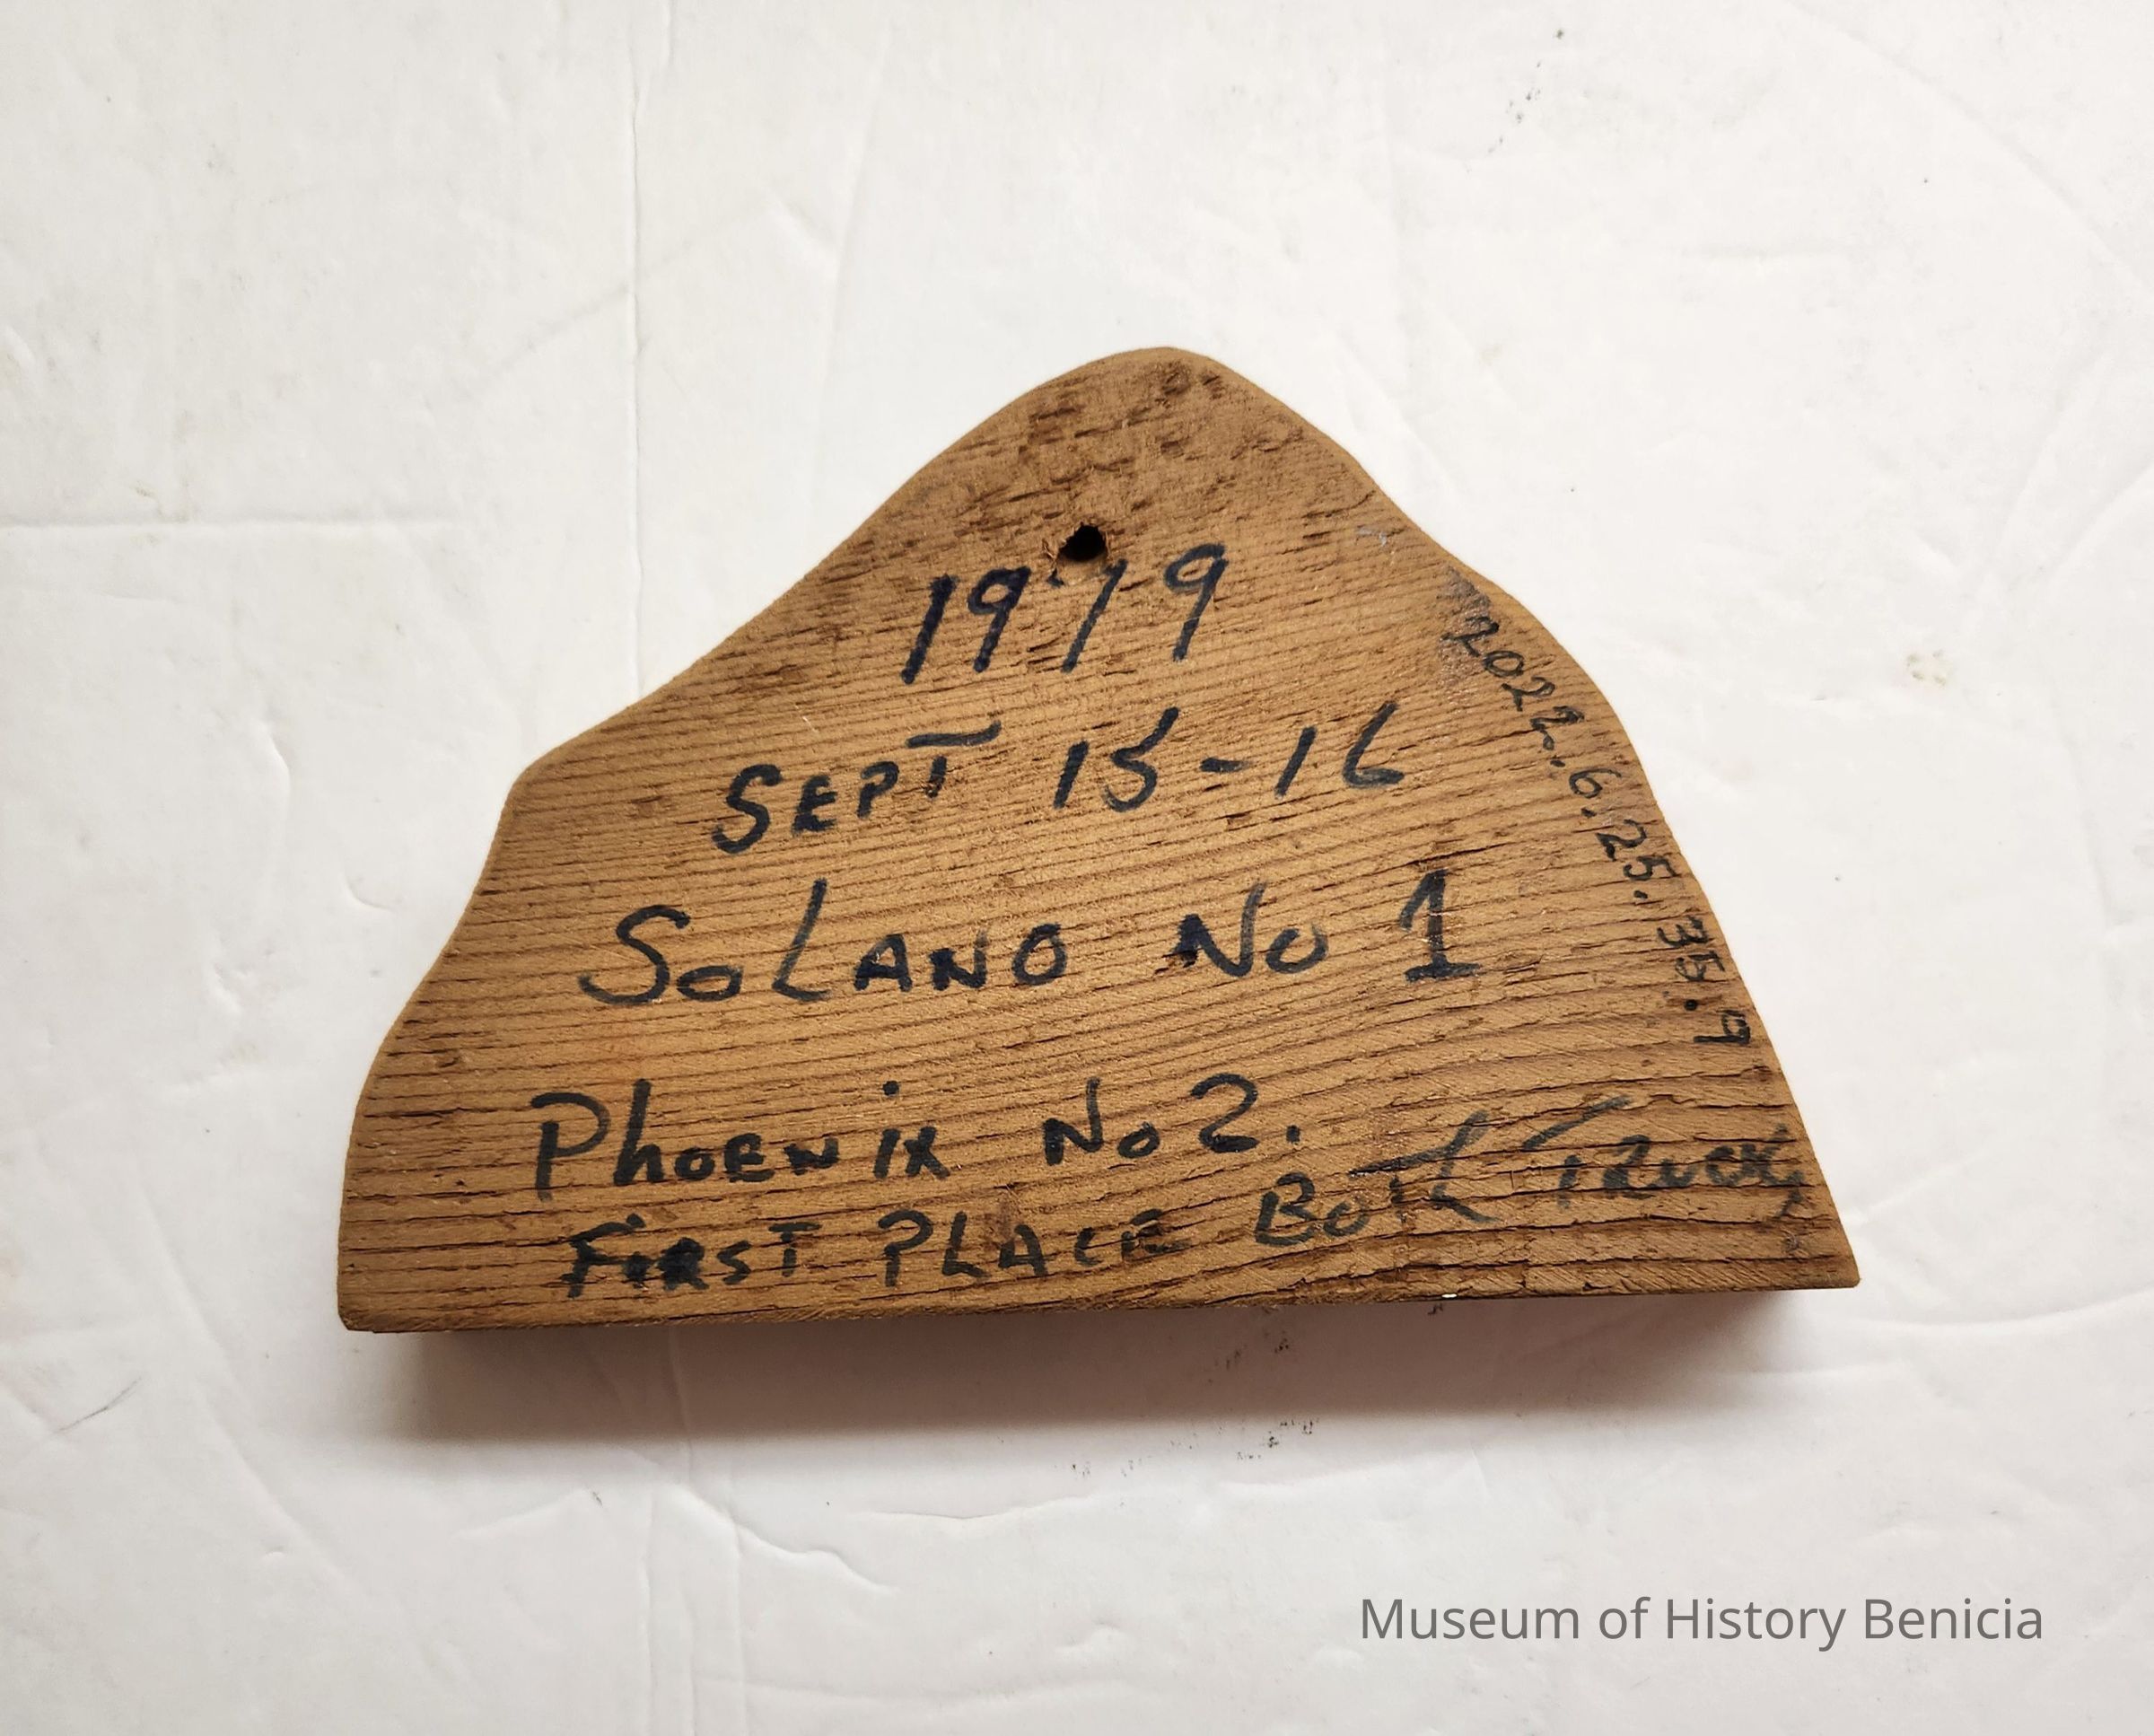 1979
SEPT 15-16
SOLANO No 1
PhOENix No 2.
FIRST PLACE Both TRUCKS
2022.6.25.35.9
Museum of History Benicia